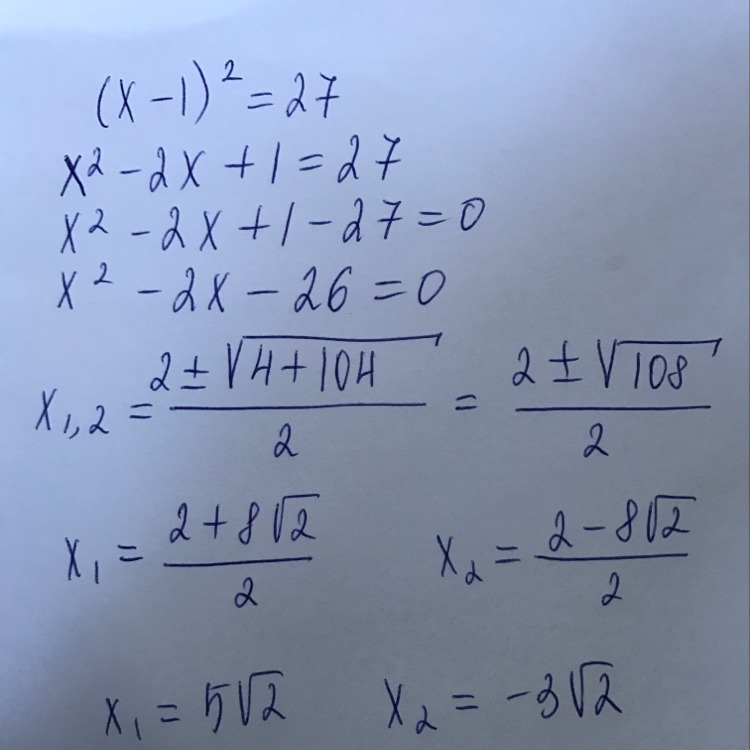 (x-1)² = 27
x² - 2x + 1 = 27
x² - 2x + 1 - 27 = 0
x² - 2x - 26 = 0
x₁,₂ = (2 ± √(4 + 104))/2 = (2 ± √108)/2
x₁ = (2 + 8√2)/2   x₂ = (2 - 8√2)/2
x₁ = 5√2   x₂ = -3√2